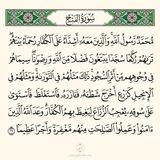 سُورَةُ الفَتْحِ
مُّحَمَّدٌ رَّسُولُ ٱللَّهِ وَٱلَّذِينَ مَعَهُۥٓ أَشِدَّآءُ عَلَى ٱلْكُفَّارِ رُحَمَآءُ بَيْنَهُمْ
تَرَىٰهُمْ رُكَّعًا سُجَّدًا يَبْتَغُونَ فَضْلًا مِّنَ ٱللَّهِ وَرِضْوَٰنًا سِيمَاهُمْ
فِى وُجُوهِهِم مِّنْ أَثَرِ ٱلسُّجُودِ ذَٰلِكَ مَثَلُهُمْ فِى ٱلتَّوْرَىٰةِ وَمَثَلُهُمْ فِى
ٱلْإِنجِيلِ كَزَرْعٍ أَخْرَجَ شَطْـَٔهُۥ فَـَٔازَرَهُۥ فَٱسْتَغْلَظَ فَٱسْتَوَىٰ
عَلَىٰ سُوقِهِۦ يُعْجِبُ ٱلزُّرَّاعَ لِيَغِيظَ بِهِمُ ٱلْكُفَّارَ وَعَدَ ٱللَّهُ ٱلَّذِينَ
ءَامَنُوا۟ وَعَمِلُوا۟ ٱلصَّٰلِحَٰتِ مِنْهُم مَّغْفِرَةً وَأَجْرًا عَظِيمًۢا